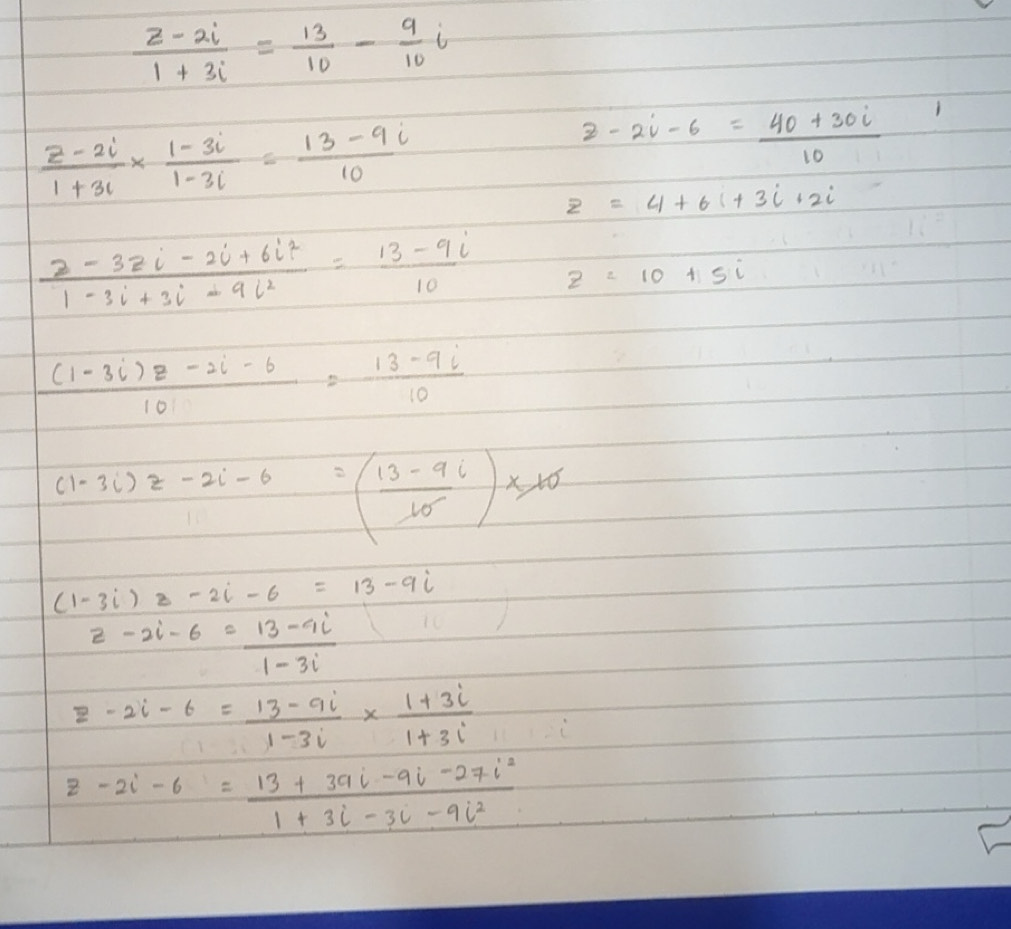 (z - 2i)/(1 + 3i) = 13/10 - 9/10 i
(z - 2i)/(1 + 3i) × (1 - 3i)/(1 - 3i) = (13 - 9i)/10
(z - 3zi - 2i + 6i²)/(1 - 3i + 3i - 9i²) = (13 - 9i)/10
((1 - 3i) z - 2i - 6)/10 = (13 - 9i)/10
(1 - 3i) z - 2i - 6 = ((13 - 9i)/10) × 10
(1 - 3i) z - 2i - 6 = 13 - 9i
z - 2i - 6 = (13 - 9i)/(1 - 3i)
z - 2i - 6 = (13 - 9i)/(1 - 3i) × (1 + 3i)/(1 + 3i)
z - 2i - 6 = (13 + 39i - 9i - 27i²)/(1 + 3i - 3i - 9i²)
z - 2i - 6 = (40 + 30i)/10
z = 4 + 6 + 3i + 2i
z = 10 + 5i